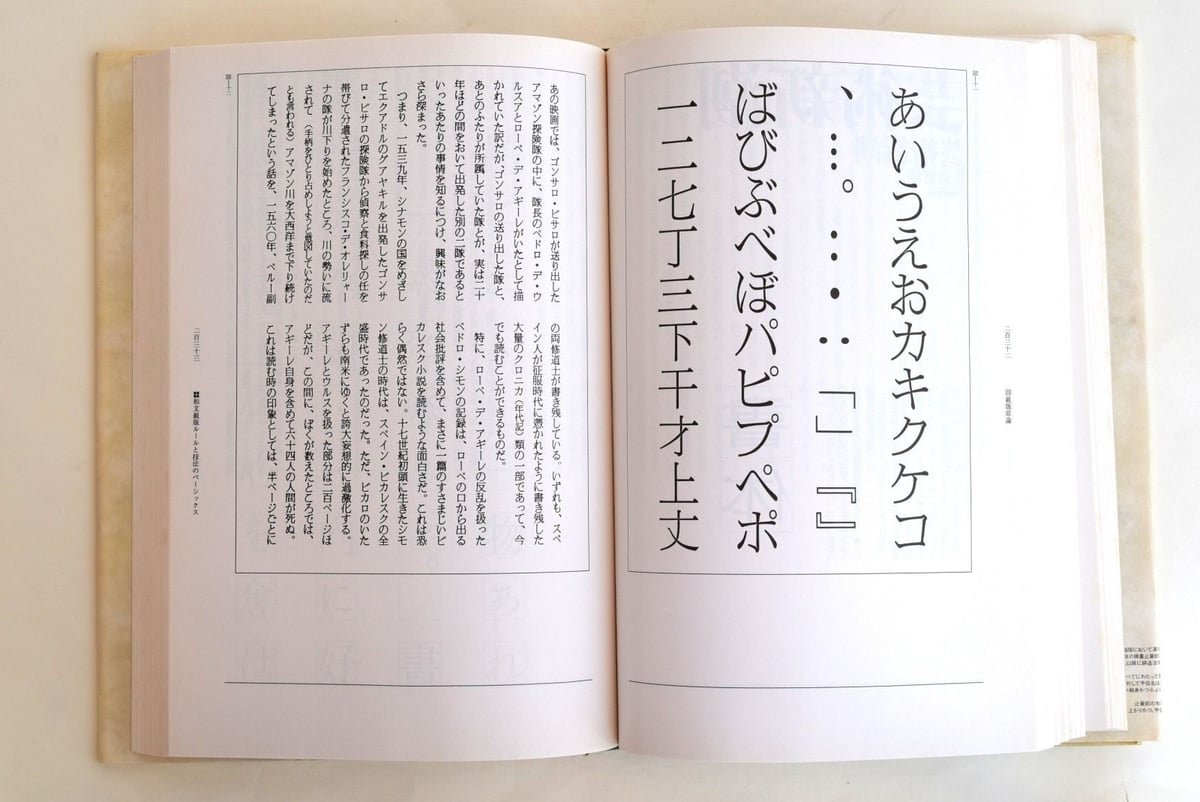 あいうえおカキクケコ
、…。・・・：「」『』
ばびぶべぼパピプペポ
一二七丁三下干才上丈
二百三十二 組版原論
図—十二
あの映画では、ゴンサロ・ピサロが送り出した
アマゾン探険隊の中に、隊長のペドロ・デ・ウ
ルスアとローペ・デ・アギーレがいたとして描
かれていた訳だが、ゴンサロの送り出した隊と、
あとのふたりが所属していた隊とが、実は二十
年ほどの間をおいて出発した別の二隊であると
いったあたりの事情を知るにつけ、興味がなお
さら深まった。
つまり、一五三九年、シナモンの国をめざし
てエクアドルのグアヤキルを出発したゴンサ
ロ・ピサロの探険隊から偵察と食料探しの任を
帯びて分遣されたフランシスコ・デ・オレリャー
ナの隊が川下りを始めたところ、川の勢いに流
されて（手柄をひとり占めしようと意図していたのだ
とも言われる）アマゾン川を大西洋まで下り続け
てしまったという話を、一五六〇年、ペルー副
の両修道士が書き残している。いずれも、スペ
イン人が征服時代に憑かれたように書き残した
大量のクロニカ（年代記）類の一部であって、今
でも読むことができるものだ。
特に、ローペ・デ・アギーレの反乱を扱った
ペドロ・シモンの記録は、ローペの口から出る
社会批評を含めて、まさに一篇のすさまじいピ
カレスク小説を読むような面白さだ。これは恐
らく偶然ではない。十七世紀初頭に生きたシモ
ン修道士の時代は、スペイン・ピカレスクの全
盛時代であったのだった。ただ、ピカロのいた
ずらも南米にゆくと誇大妄想的に過激化する。
アギーレとウルスを扱った部分は二百ページほ
どだが、この間に、ぼくが数えたところでは、
アギーレ自身を含めて六十四人の人間が死ぬ。
これは読む時の印象としては、半ページごとに
二百三十三 和文組版ルールと技法のベーシックス